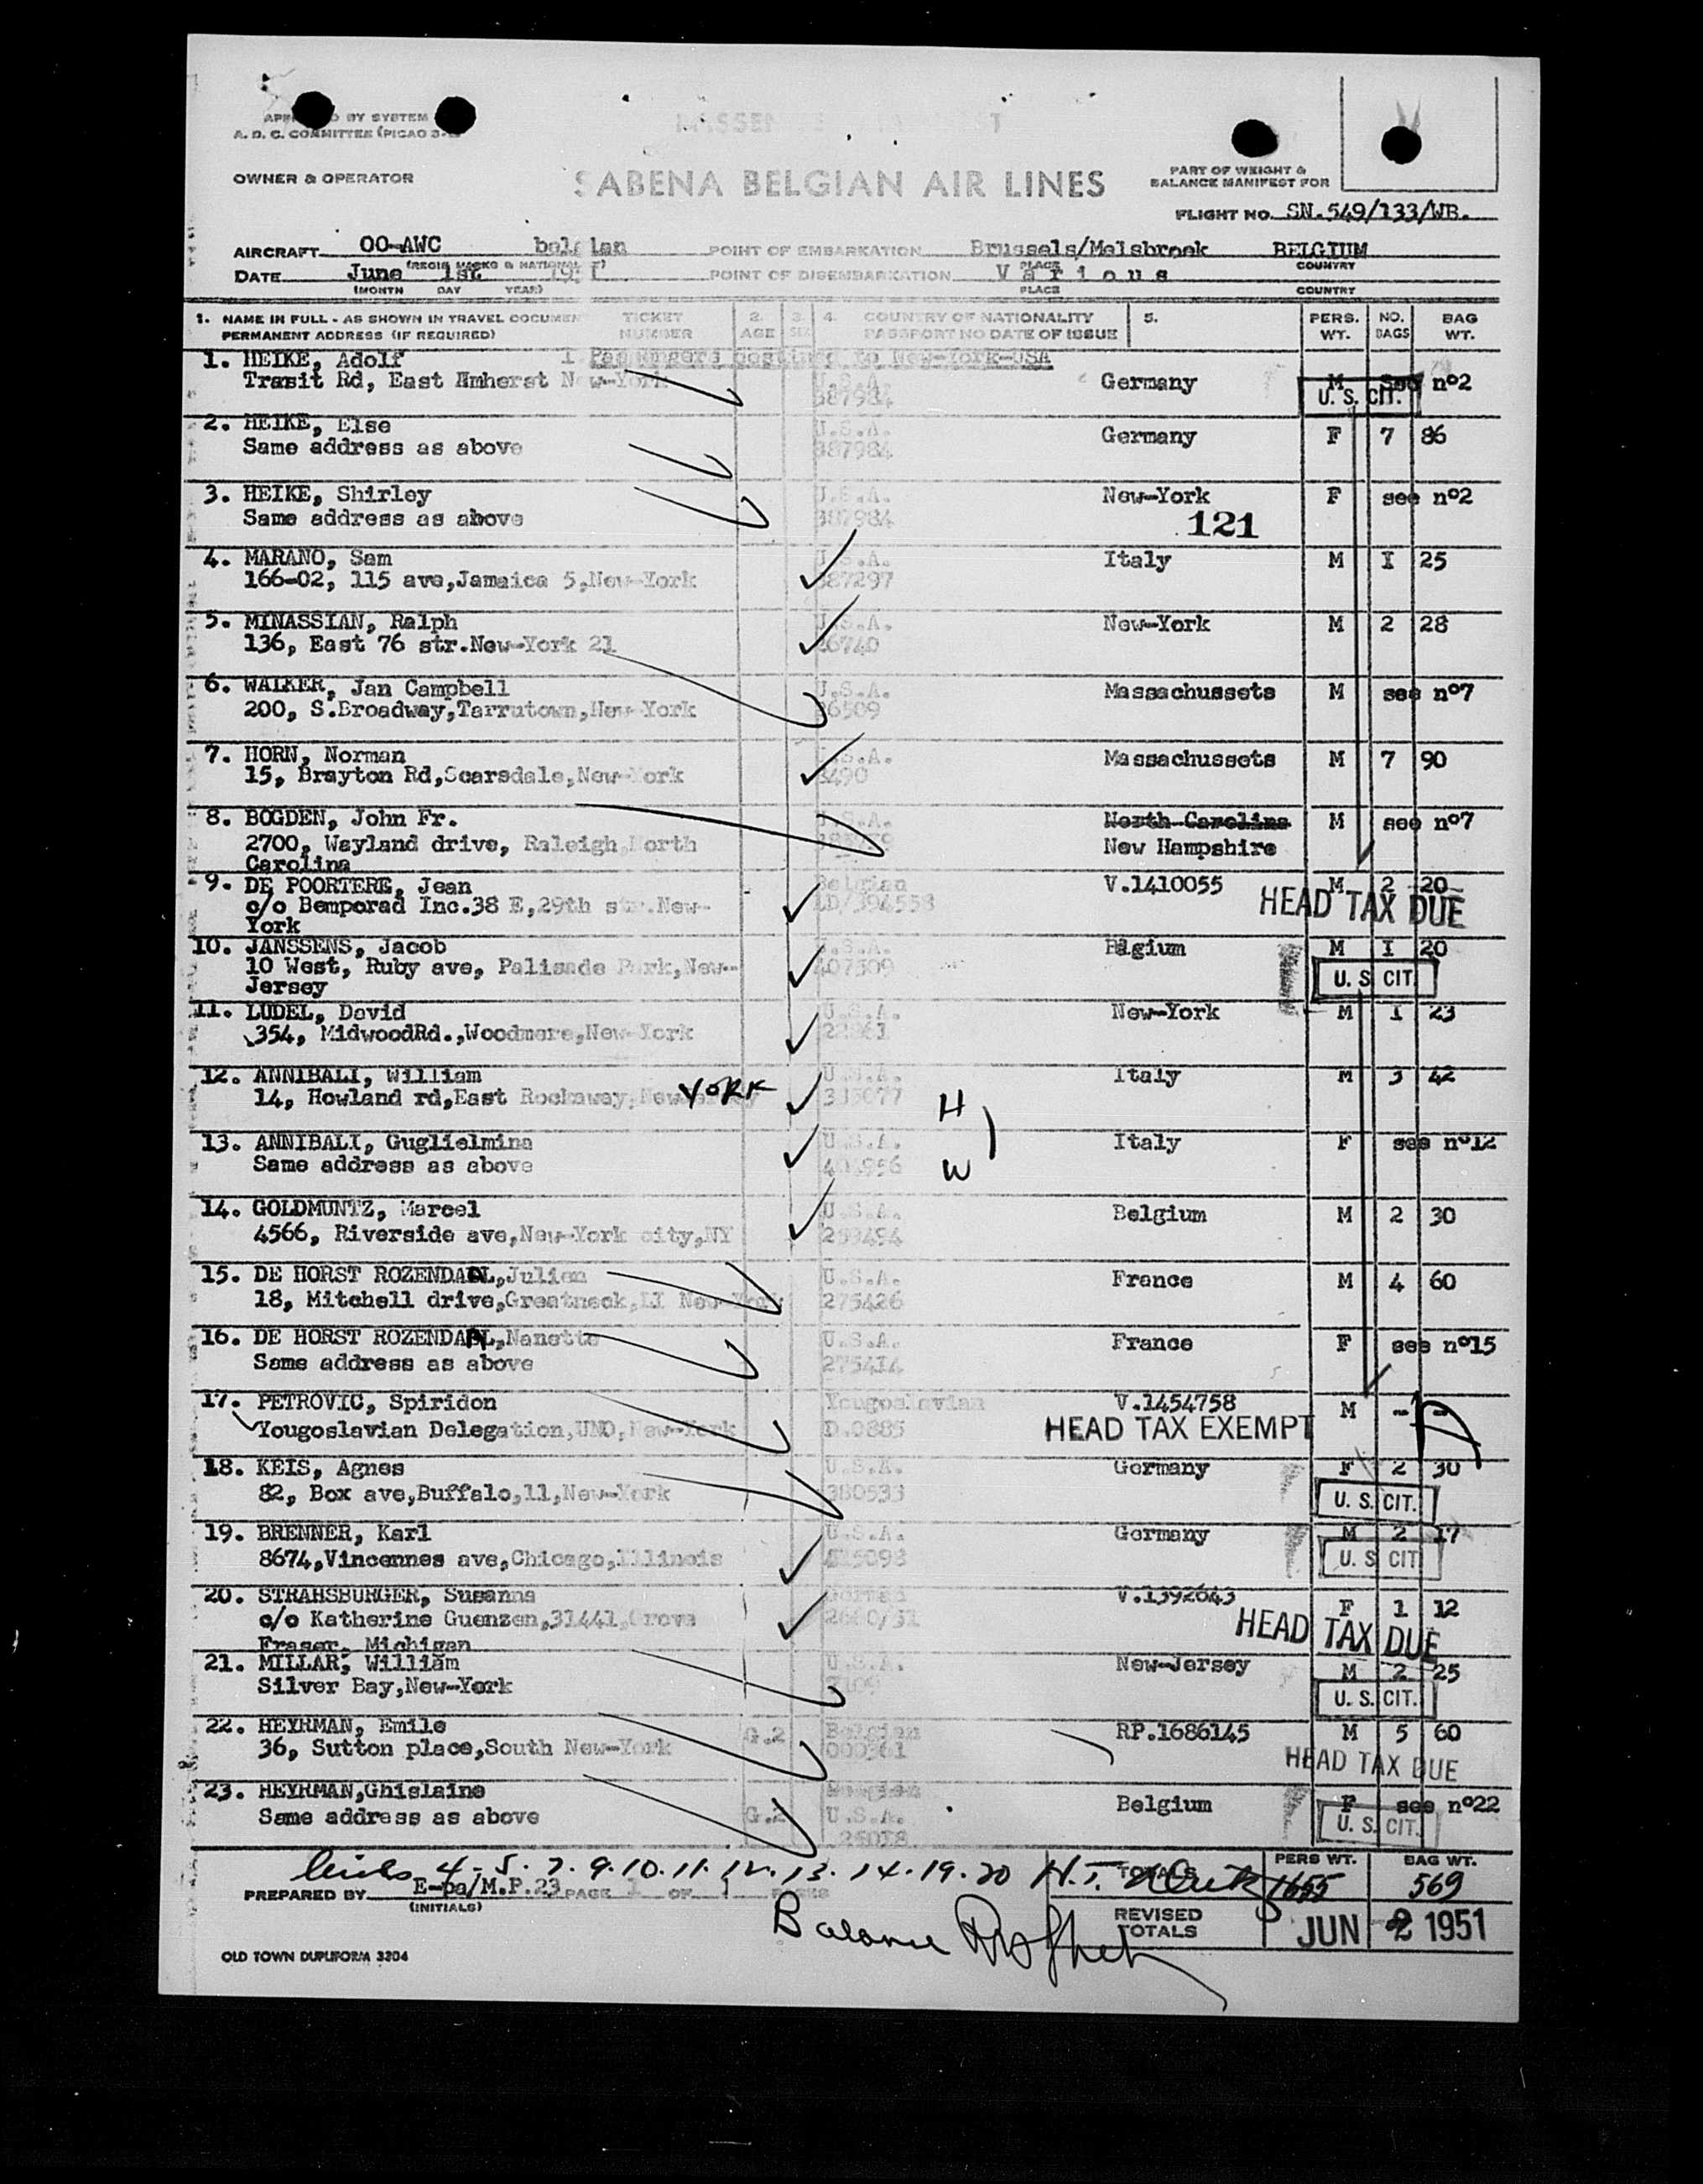 BY SYSTEM
A. D. C. COMMITTEE (PICAO
OWNER & OPERATOR
SABENA BELGIAN AIR LINES
PART OF WEIGHT &
BALANCE MANIFEST FOR
FLIGHT NO. SN.549/133/WB.
AIRCRAFT OO-AWC POINT OF EMBARKATION Brussels/Melsbroek BELGIUM
PLACE COUNTRY
DATE June 1st POINT OF DISEMBARKATION Various
(MONTH DAY YEAR) PLACE COUNTRY
1. NAME IN FULL - AS SHOWN IN TRAVEL DOCUMEN TICKET 2. 3. 4. COUNTRY OF NATIONALITY 5. PERS. NO. BAG
PERMANENT ADDRESS (IF REQUIRED) NUMBER AGE SEX PASSPORT NO DATE OF ISSUE WT. BAGS WT.
1. HEIKE, Adolf Passengers destined to New-York-USA
Trasit Rd, East Amherst New-York 387984 Germany M See nº2
U. S. CIT.
2. HEIKE, Else U.S.A. Germany F 7 86
Same address as above 387984
3. HEIKE, Shirley U.S.A. New-York F see nº2
Same address as above 387984 121
4. MARANO, Sam U.S.A. Italy M I 25
166-02, 115 ave,Jamaica 5,New-York 87297
5. MINASSIAN, Ralph U.S.A. New-York M 2 28
136, East 76 str.New-York 21 6740
6. WALKER, Jan Campbell U.S.A. Massachussets M see nº7
200, S.Broadway,Tarrutown,New-York 6509
7. HORN, Norman U.S.A. Massachussets M 7 90
15, Brayton Rd,Scarsdale,New-York 490
8. BOGDEN, John Fr. U.S.A. North Carolina M see nº7
2700, Wayland drive, Raleigh North New Hampshire
Carolina
9. DE POORTERE, Jean Belgian V.1410055 M 2 20
c/o Bemporad Inc.38 E,29th str.New- HEAD TAX DUE
York
10. JANSSENS, Jacob U.S.A. Belgium M I 20
10 West, Ruby ave, Palisade Park,New- 407509 U. S. CIT.
Jersey
11. LUDEL, David U.S.A. New-York M I 23
354, MidwoodRd.,Woodmere,New-York
12. ANNIBALI, William U.S.A. Italy M 3 42
14, Howland rd,East Rockaway, New YORK H
13. ANNIBALI, Guglielmina U.S.A. Italy F see nº12
Same address as above W
14. GOLDMUNTZ, Marcel U.S.A. Belgium M 2 30
4566, Riverside ave,New-York city,NY
15. DE HORST ROZENDAAL,Julien U.S.A. France M 4 60
18, Mitchell drive,Greatneck,LI New-York 275426
16. DE HORST ROZENDAAL,Nanette U.S.A. France F see nº15
Same address as above 275414
17. PETROVIC, Spiridon Yougoslavian V.1454758 M - -
Yougoslavian Delegation,UNO,New-York D.0885 HEAD TAX EXEMPT
18. KEIS, Agnes U.S.A. Germany F 2 30
82, Box ave,Buffalo,11,New-York 380533 U. S. CIT.
19. BRENNER, Karl U.S.A. Germany M 2 17
8674,Vincennes ave,Chicago,Illinois U. S. CIT.
20. STRAHSBURGER, Susanna German V.1392643 F 1 12
c/o Katherine Guenzen,31441,Grove HEAD TAX DUE
Fraser, Michigan
21. MILLAR, William U.S.A. New-Jersey M 2 25
Silver Bay,New-York U. S. CIT.
22. HEYRMAN, Emile G.2 Belgian RP.1686145 M 5 60
36, Sutton place,South New-York HEAD TAX DUE
23. HEYRMAN,Ghislaine Belgium F see nº22
Same address as above G.2 U.S.A. U. S. CIT.
4-5.7.9.10.11.12.13.14.19.20 H.T. TOTALS PERS WT. BAG WT.
PREPARED BY E-ba/M.P.23 PAGE 1 OF 1 1655 569
(INITIALS)
Balance REVISED TOTALS JUN 2 1951
OLD TOWN DUPLIFORM 3204